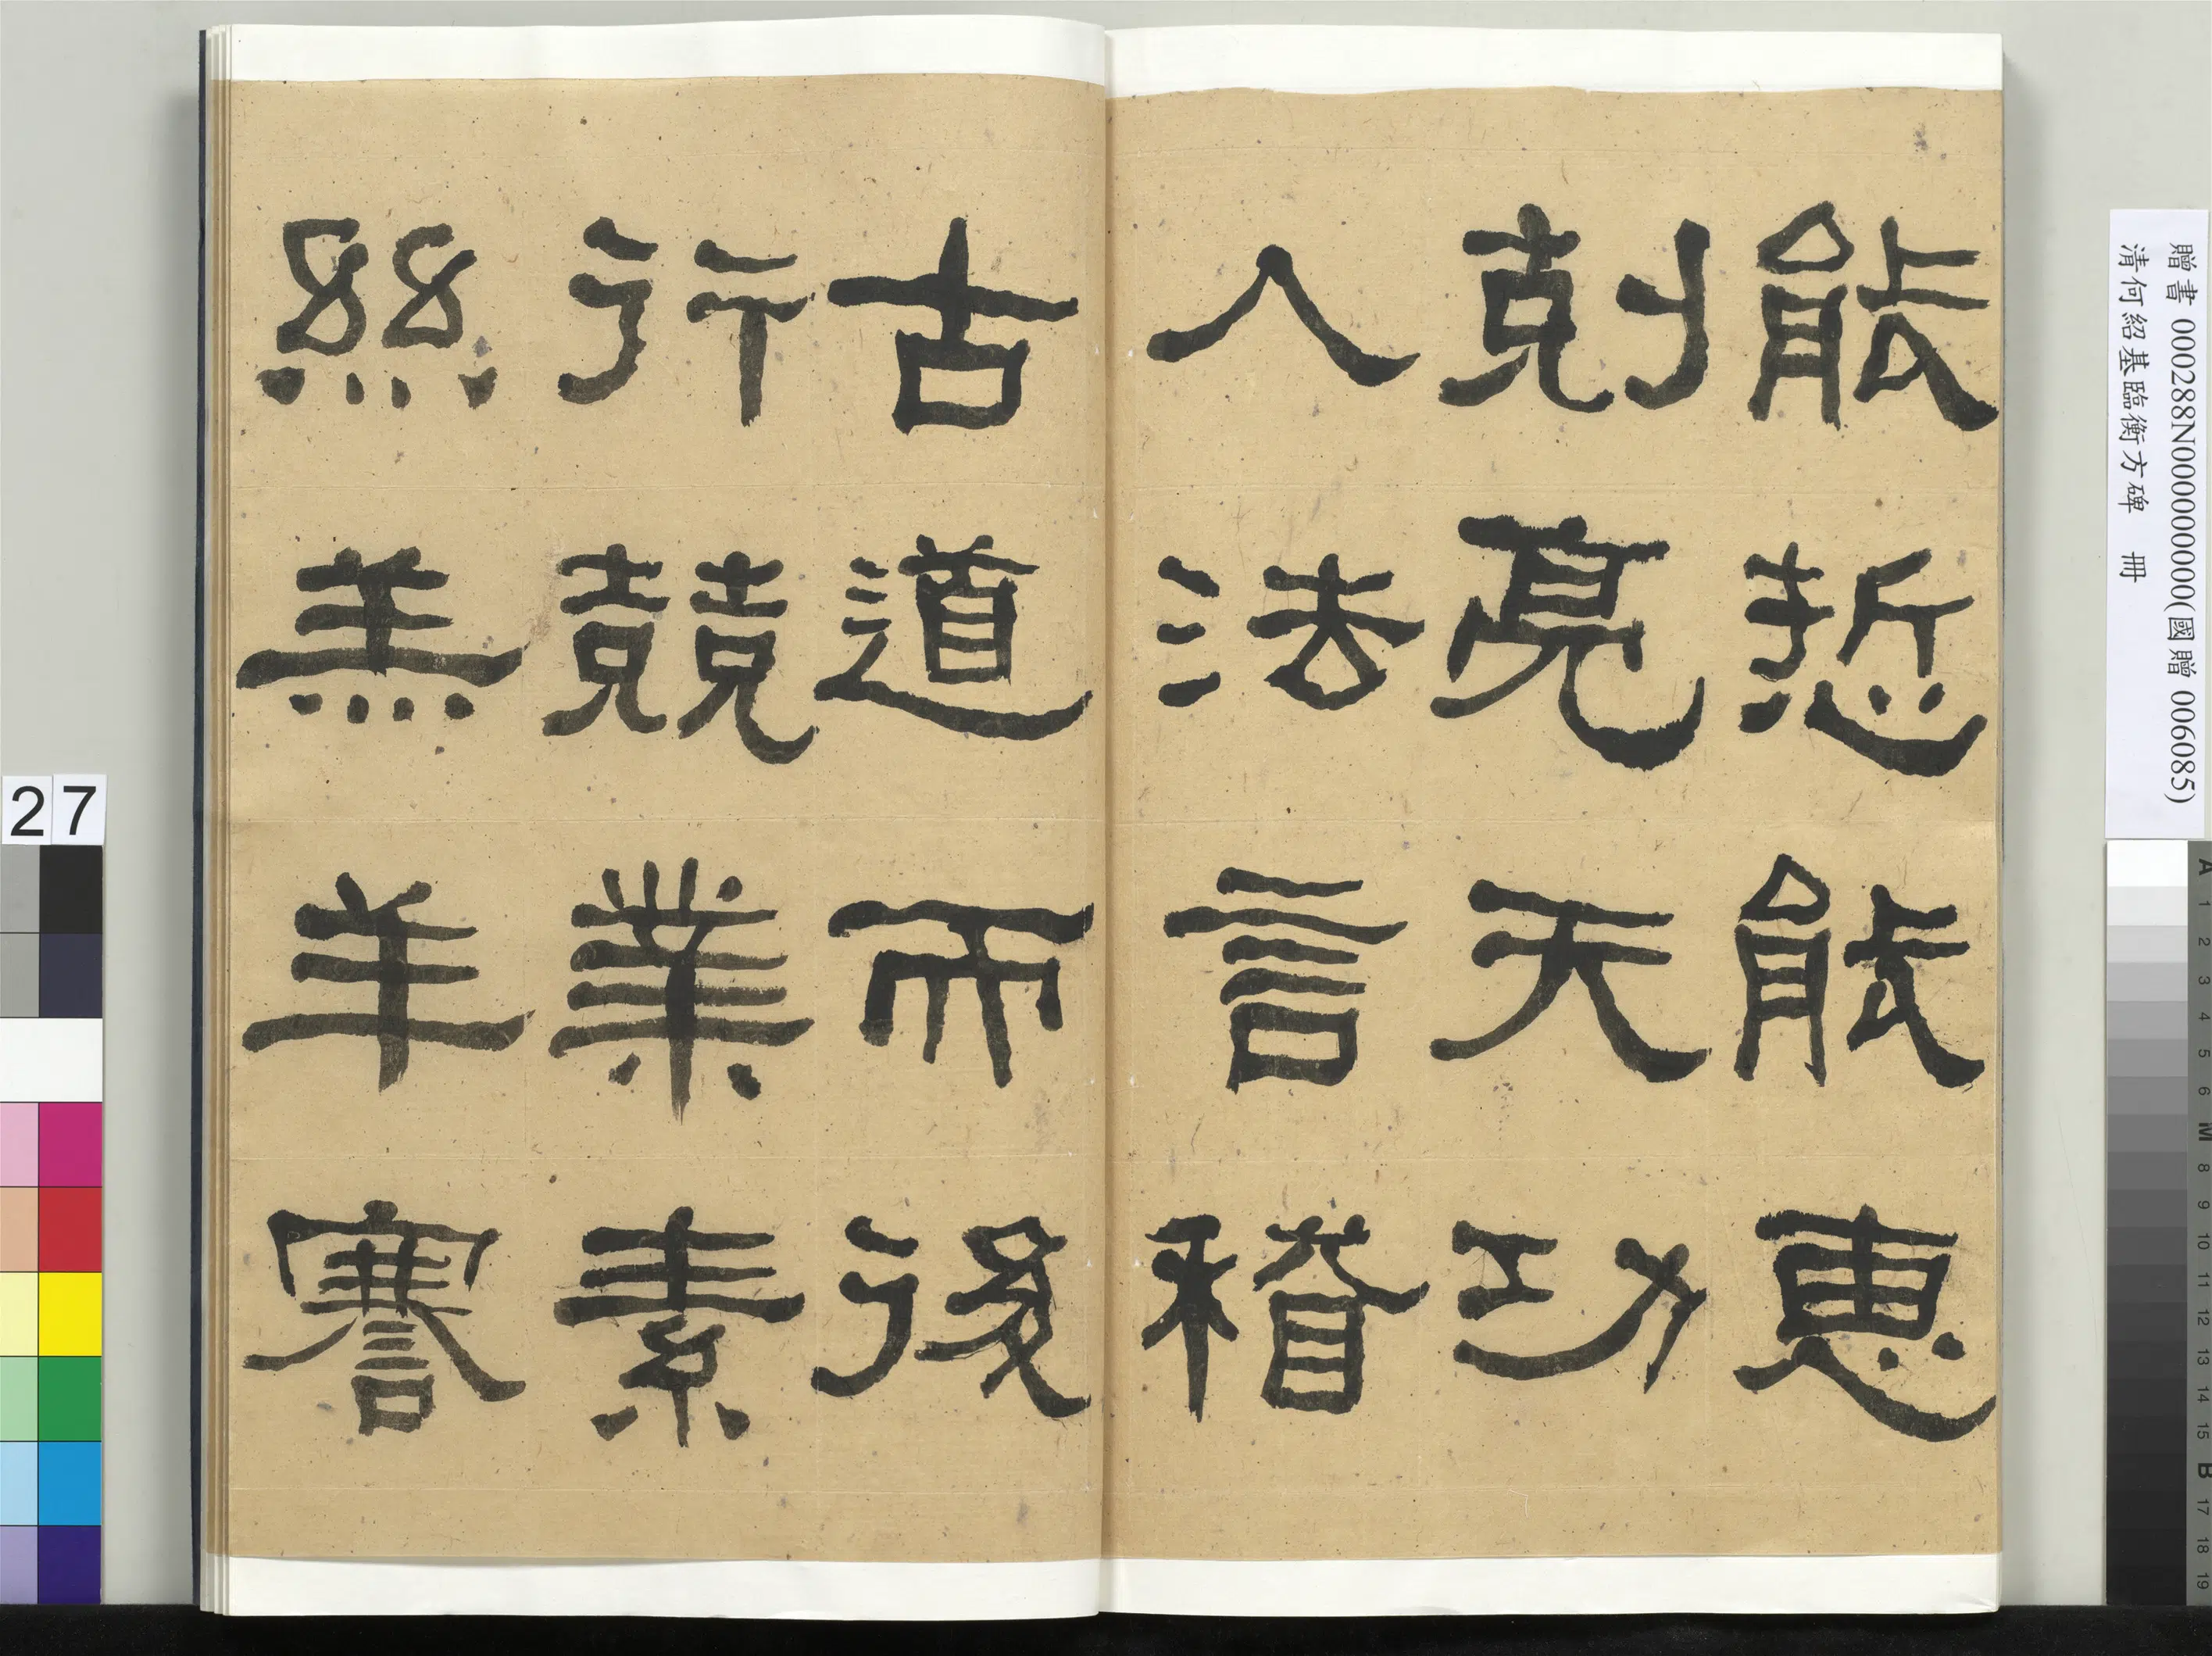 能悊能恵
剋亮天功
人法言稽
古道而後
行兢業素
絲羔羊謇
贈書 000288N000000000(國贈 006085)
清何紹基臨衡方碑 冊
27
A 1 2 3 4 5 6 M 8 9 10 11 12 13 14 15 B 17 18 19